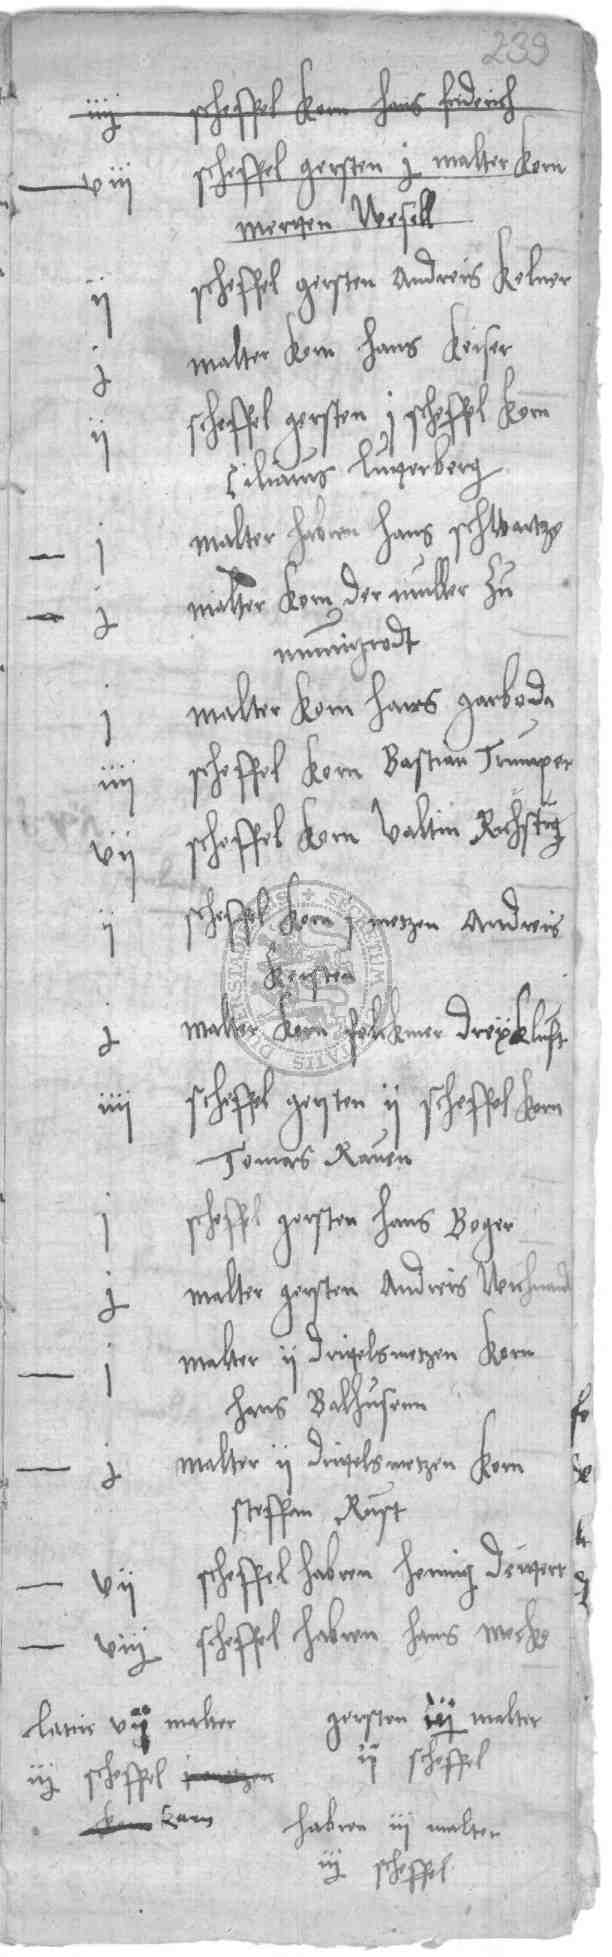 239
iiij scheffel korn hans friderich
viij scheffel gersten j malter korn
merten Wesell
ij scheffel gersten Andreis Kelner
j malter korn hans Keiser
ij scheffel gersten j scheffel korn
Cilianus
j malter habern hans schwartze
j malter korn der muller zu
j malter korn hans garboda
iiij scheffel korn Bastian Trumper
vij scheffel korn Valtin
ij scheffel korn j metzen Andreis
Kersten
j malter korn folckmer
iiij scheffel gersten ij scheffel korn
Tomas Rauen
j scheffel gersten hans Boger
j malter gersten Andreis
j malter ij metzen korn
hans Balhusenn
j malter ij metzen korn
steffan Rust
vij scheffel habern hennig
viij scheffel habern hans
latus vij malter gersten iij malter
iij scheffel ij scheffel
korn habern iij malter
iij scheffel